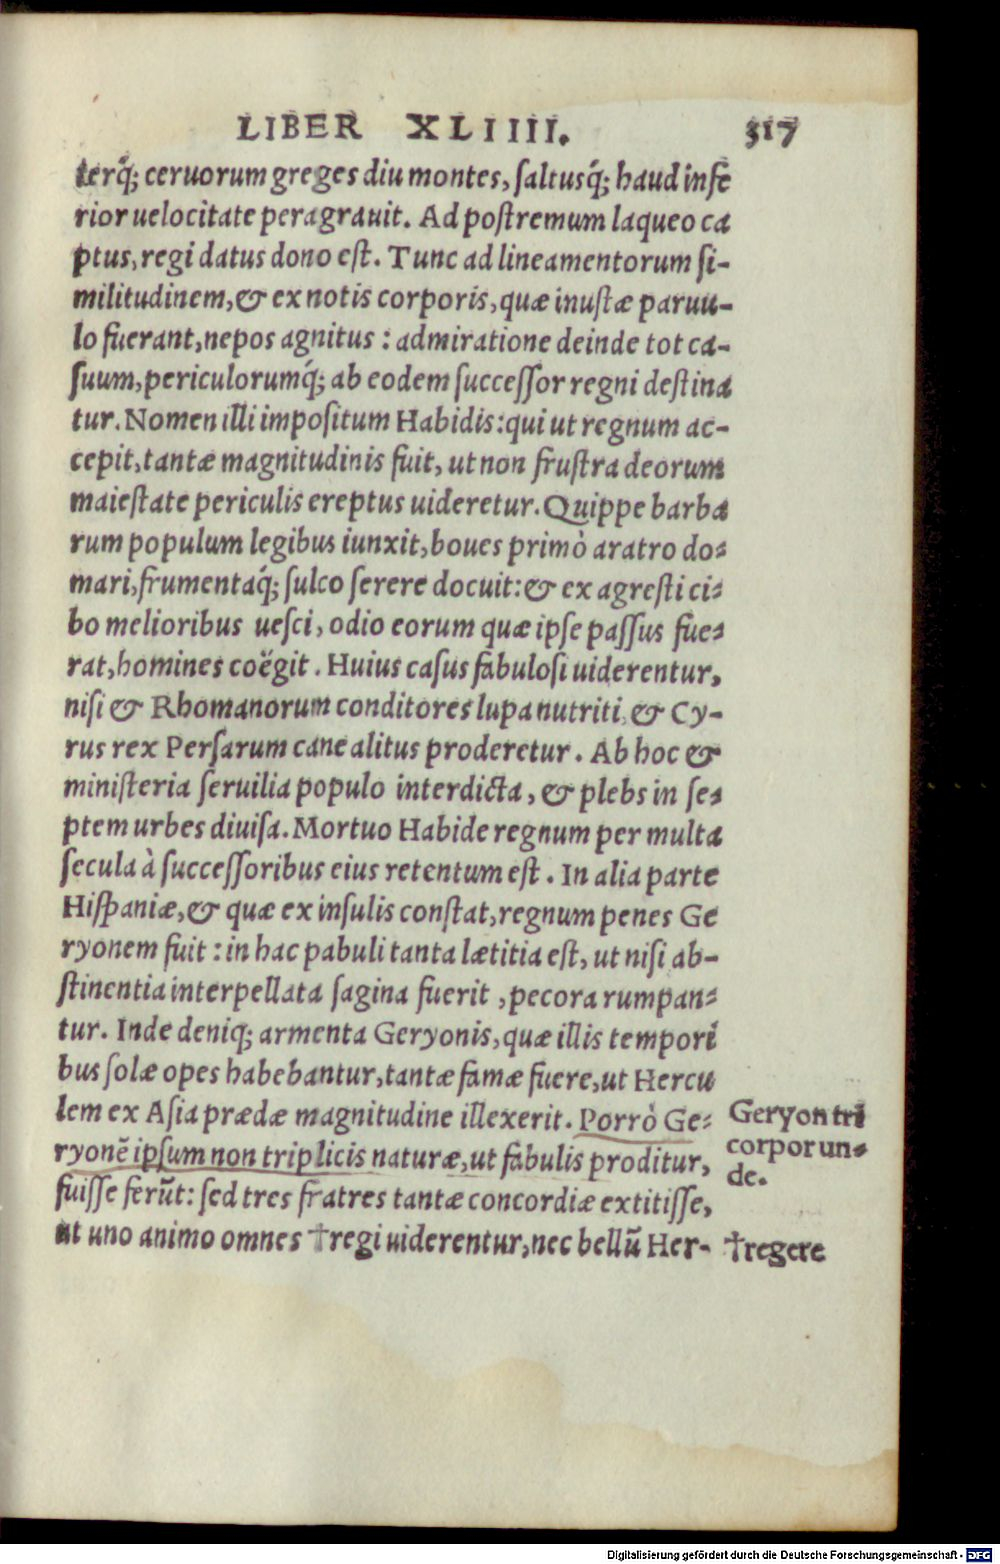 LIBER XLIIII. 317
terq́; ceruorum greges diu montes, ſaltusq́; haud infe
rior uelocitate peragrauit. Ad poſtremum laqueo ca
ptus, regi datus dono eſt. Tunc ad lineamentorum ſi-
militudinem, & ex notis corporis, quæ inuſtæ paruu-
lo fuerant, nepos agnitus : admiratione deinde tot ca-
ſuum, periculorumq́; ab eodem ſucceſſor regni deſtina
tur. Nomen illi impoſitum Habidis: qui ut regnum ac-
cepit, tantæ magnitudinis fuit, ut non fruſtra deorum
maieſtate periculis ereptus uideretur. Quippe barba
rum populum legibus iunxit, boues primò aratro do-
mari, frumentaq́; ſulco ſerere docuit: & ex agreſti ci-
bo melioribus ueſci, odio eorum quæ ipſe paſſus fue-
rat, homines coëgit. Huius caſus fabuloſi uiderentur,
niſi & Rhomanorum conditores lupa nutriti, & Cy-
rus rex Perſarum cane alitus proderetur. Ab hoc &
miniſteria ſeruilia populo interdicta, & plebs in ſe-
ptem urbes diuiſa. Mortuo Habide regnum per multa
ſecula à ſucceſſoribus eius retentum eſt. In alia parte
Hiſpaniæ, & quæ ex inſulis conſtat, regnum penes Ge
ryonem fuit : in hac pabuli tanta lætitia eſt, ut niſi ab-
ſtinentia interpellata ſagina fuerit, pecora rumpan-
tur. Inde deniq; armenta Geryonis, quæ illis tempori
bus ſolæ opes habebantur, tantæ famæ fuere, ut Hercu
lem ex Aſia prædæ magnitudine illexerit. Porrò Ge-
ryonē ipſum non triplicis naturæ, ut fabulis proditur,
fuiſſe ferūt: ſed tres fratres tantæ concordiæ extitiſſe,
ut uno animo omnes †regi uiderentur, nec bellū Her-
Geryon tri
corpor un-
de.
†regere
Digitalisierung gefördert durch die Deutsche Forschungsgemeinschaft - DFG